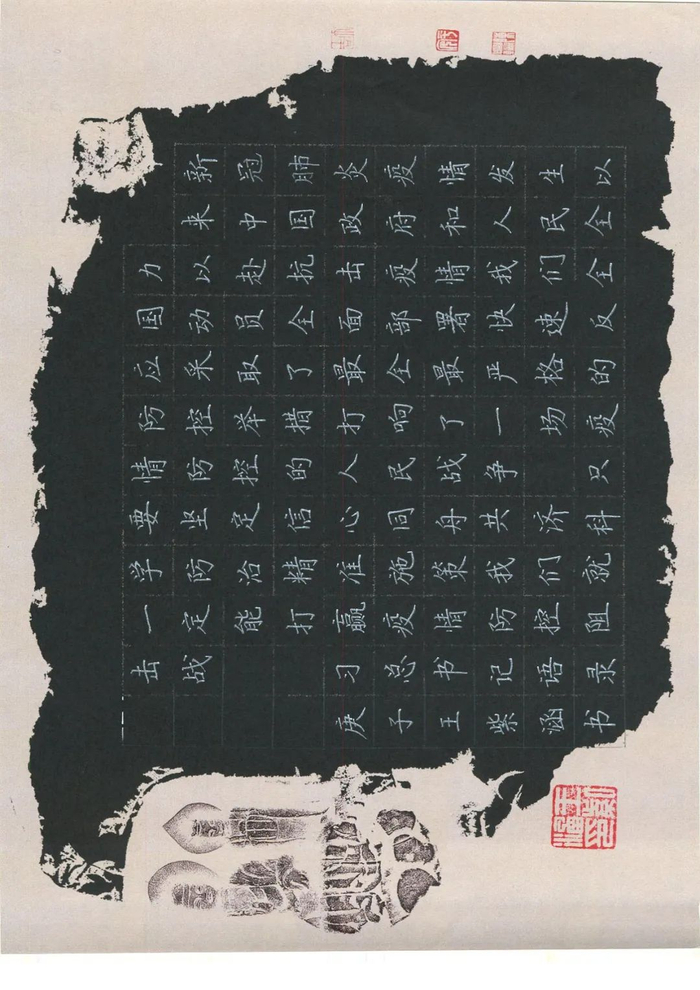 新冠肺炎疫情发生以
来中国政府和人民全
力以赴抗击疫情我们全
国动员全面部署快速反
应采取了最全最严格的
防控举措打响了一场疫
情防控的人民战争 只
要坚定信心同舟共济科
学防治精准施策我们就
一定能打赢疫情防控阻
击战 习总书记语录
庚子王紫涵书